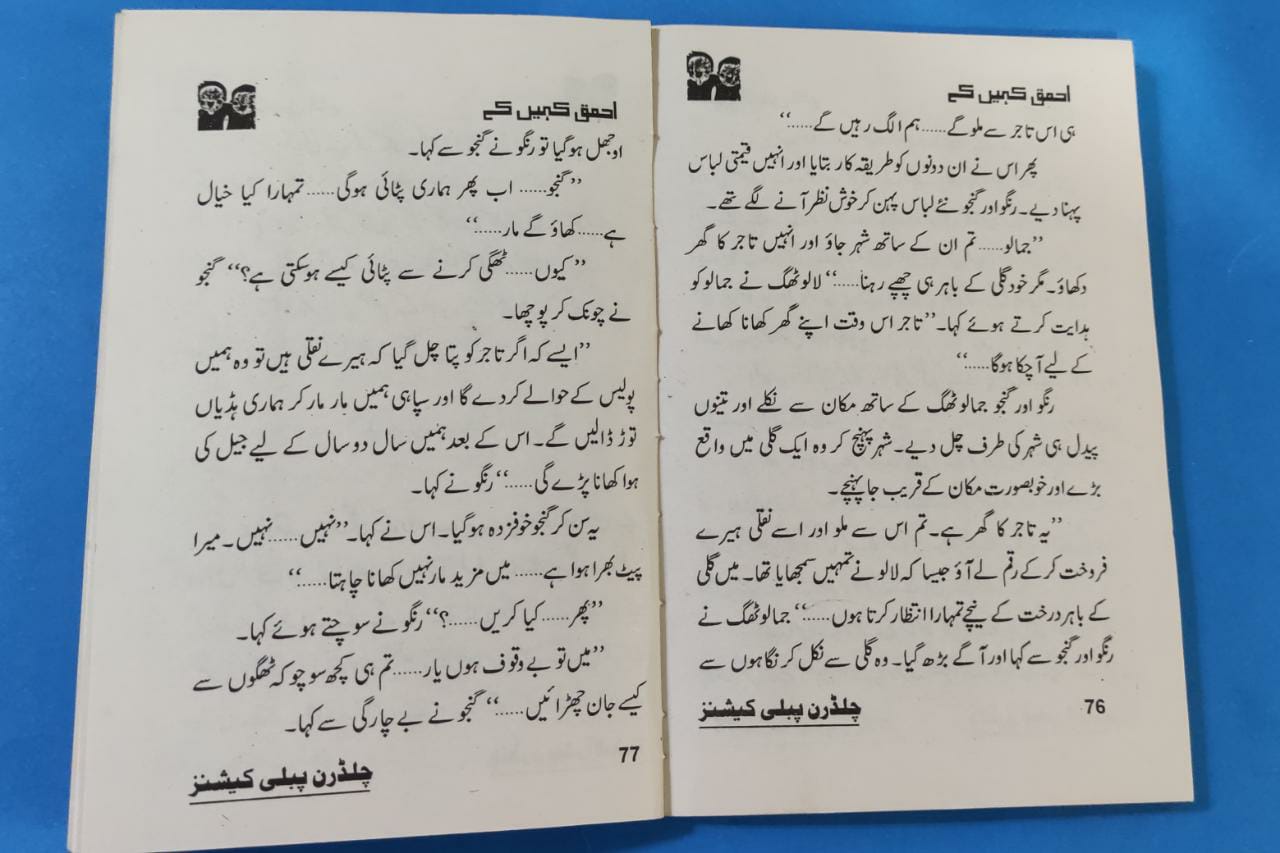 احمق کہیں کے
ہی اس تاجر سے ملو گے...... ہم الگ رہیں گے......‘‘
پھر اس نے ان دونوں کو طریقہ کار بتایا اور انہیں قیمتی لباس
پہنا دیے۔ رنگو اور گنجو نئے لباس پہن کر خوش نظر آنے لگے تھے۔
’’جمالو...... تم ان کے ساتھ شہر جاؤ اور انہیں تاجر کا گھر
دکھاؤ۔ مگر خود گلی کے باہر ہی چھپے رہنا......‘‘ لالو ٹھگ نے جمالو کو
ہدایت کرتے ہوئے کہا۔ ’’تاجر اس وقت اپنے گھر کھانا کھانے
کے لیے آ چکا ہو گا......‘‘
رنگو اور گنجو جمالو ٹھگ کے ساتھ مکان سے نکلے اور تینوں
پیدل ہی شہر کی طرف چل دیے۔ شہر پہنچ کر وہ ایک گلی میں واقع
بڑے اور خوبصورت مکان کے قریب جا پہنچے۔
’’یہ تاجر کا گھر ہے۔ تم اس سے ملو اور اسے نقلی ہیرے
فروخت کر کے رقم لے آؤ جیسا کہ لالو نے تمہیں سمجھایا تھا۔ میں گلی
کے باہر درخت کے نیچے تمہارا انتظار کرتا ہوں......‘‘ جمالو ٹھگ نے
رنگو اور گنجو سے کہا اور آگے بڑھ گیا۔ وہ گلی سے نکل کر نگاہوں سے
76
چلڈرن پبلی کیشنز
احمق کہیں کے
اوجھل ہو گیا تو رنگو نے گنجو سے کہا۔
’’گنجو...... اب پھر ہماری پٹائی ہو گی...... تمہارا کیا خیال
ہے...... کھاؤ گے مار......‘‘
’’کیوں...... ٹھگی کرنے سے پٹائی کیسے ہو سکتی ہے؟‘‘ گنجو
نے چونک کر پوچھا۔
’’ایسے کہ اگر تاجر کو پتا چل گیا کہ ہیرے نقلی ہیں تو وہ ہمیں
پولیس کے حوالے کر دے گا اور سپاہی ہمیں مار مار کر ہماری ہڈیاں
توڑ ڈالیں گے۔ اس کے بعد ہمیں سال دو سال کے لیے جیل کی
ہوا کھانا پڑے گی......‘‘ رنگو نے کہا۔
یہ سن کر گنجو خوفزدہ ہو گیا۔ اس نے کہا۔ ’’نہیں...... نہیں۔ میرا
پیٹ بھرا ہوا ہے...... میں مزید مار نہیں کھانا چاہتا......‘‘
’’پھر...... کیا کریں......؟‘‘ رنگو نے سوچتے ہوئے کہا۔
’’میں تو بے وقوف ہوں یار...... تم ہی کچھ سوچو کہ ٹھگوں سے
کیسے جان چھڑائیں......‘‘ گنجو نے بے چارگی سے کہا۔
77
چلڈرن پبلی کیشنز